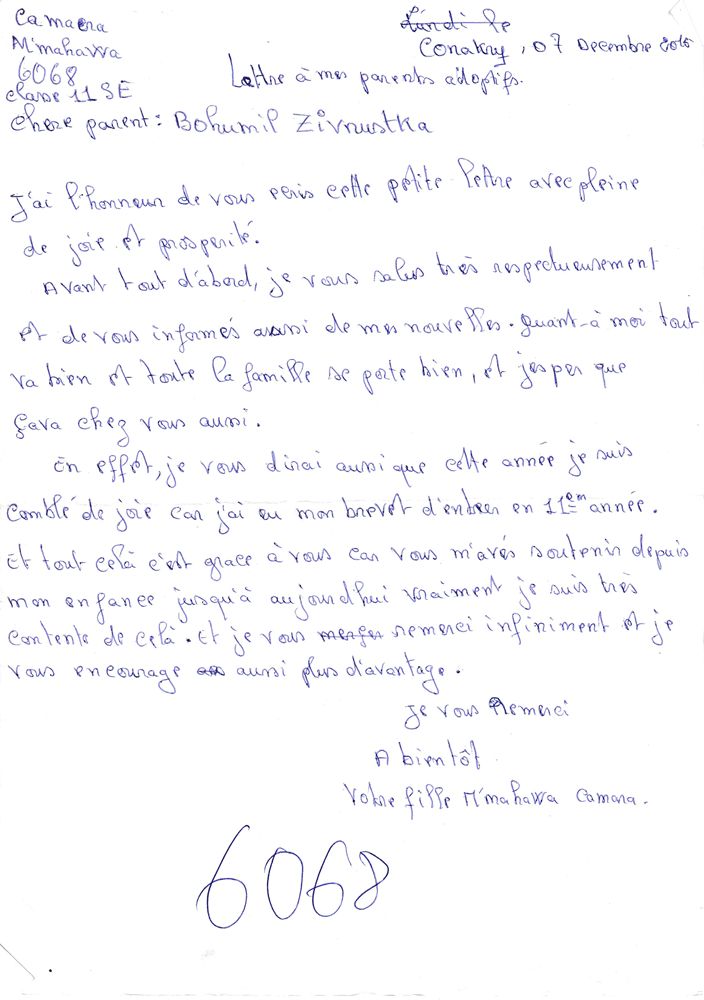 Camara
M'mahawa
6068
classe 11 SE
Lundi le
Conakry, 07 Decembre
Lettre à mes parents adoptifs.
chere parent : Bohumil Zivnustka
J'ai l'honneur de vous ecris cette petite lettre avec pleine
de joie et prosperité.
Avant tout d'abord, je vous salus très respectueusement
et de vous informés aussi de mes nouvelles. quant-à moi tout
va bien et toute la famille se porte bien, et jesper que
çava chez vous aussi.
En effet, je vous dirai aussi que cette année je suis
comblé de joie car j'ai eu mon brevet d'entrer en 11èm année.
Et tout celà c'est grace à vous car vous m'avés soutenir depuis
mon enfance jusqu'à aujourd'hui vraiment je suis très
contente de celà. Et je vous remerci infiniment et je
vous encourage aussi plus d'avantage.
je vous Remerci
A bientôt
Votre fille M'mahawa Camara.
6068